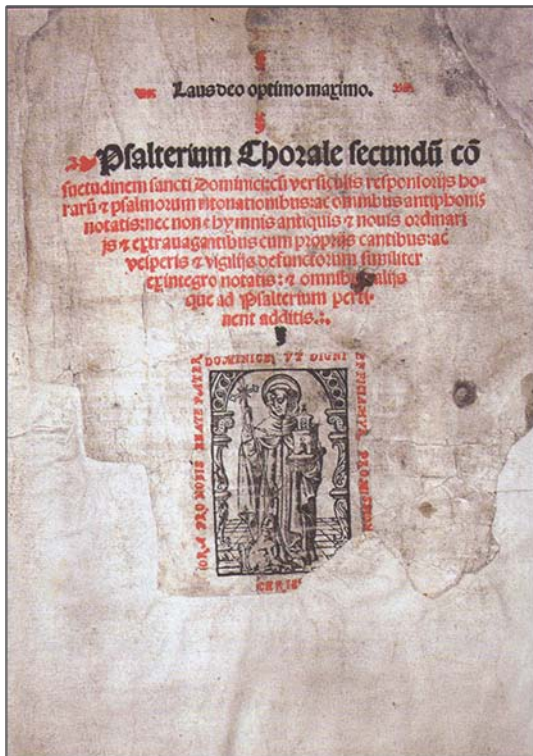 Laus deo optimo maximo.
Psalterium Chorale secundũ cõ
suetudinem sancti Dominici: cũ versiculis responsorijs ho-
rarũ ⁊ psalmorum intonationibus: ac omnibus antiphonis
notatis: nec non ⁊ hymnis antiquis ⁊ nouis ordinari
js ⁊ extrauagantibus cum proprijs cantibus: ac
vesperis ⁊ vigilijs defunctorum similiter
exintegro notatis: ⁊ omnibus alijs
que ad Psalterium perti-
nent additis.:.
ORA PRO NOBIS BEATE PATER
DOMINICE VT DIGNI
EFFICIAMVR PROMISSION
CHRIS